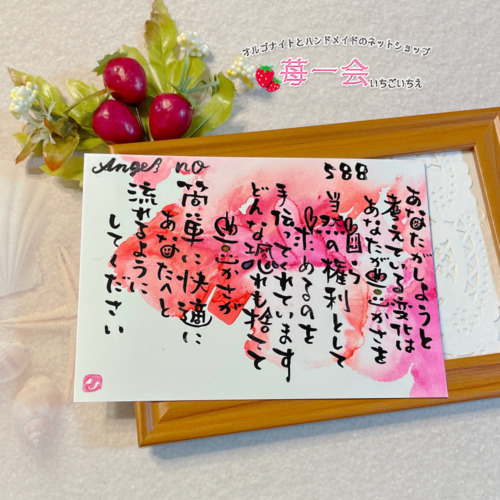 オルゴナイトとハンドメイドのネットショップ
苺一会いちごいちえ
Angel no 588
あなたがしようと
考えている変化は
あなたが豊かさを
当然の権利として
求めるのを
手伝ってくれています
どんな恐れも捨てて
豊かさが
簡単に快適に
あなたへと
流れるように
してください